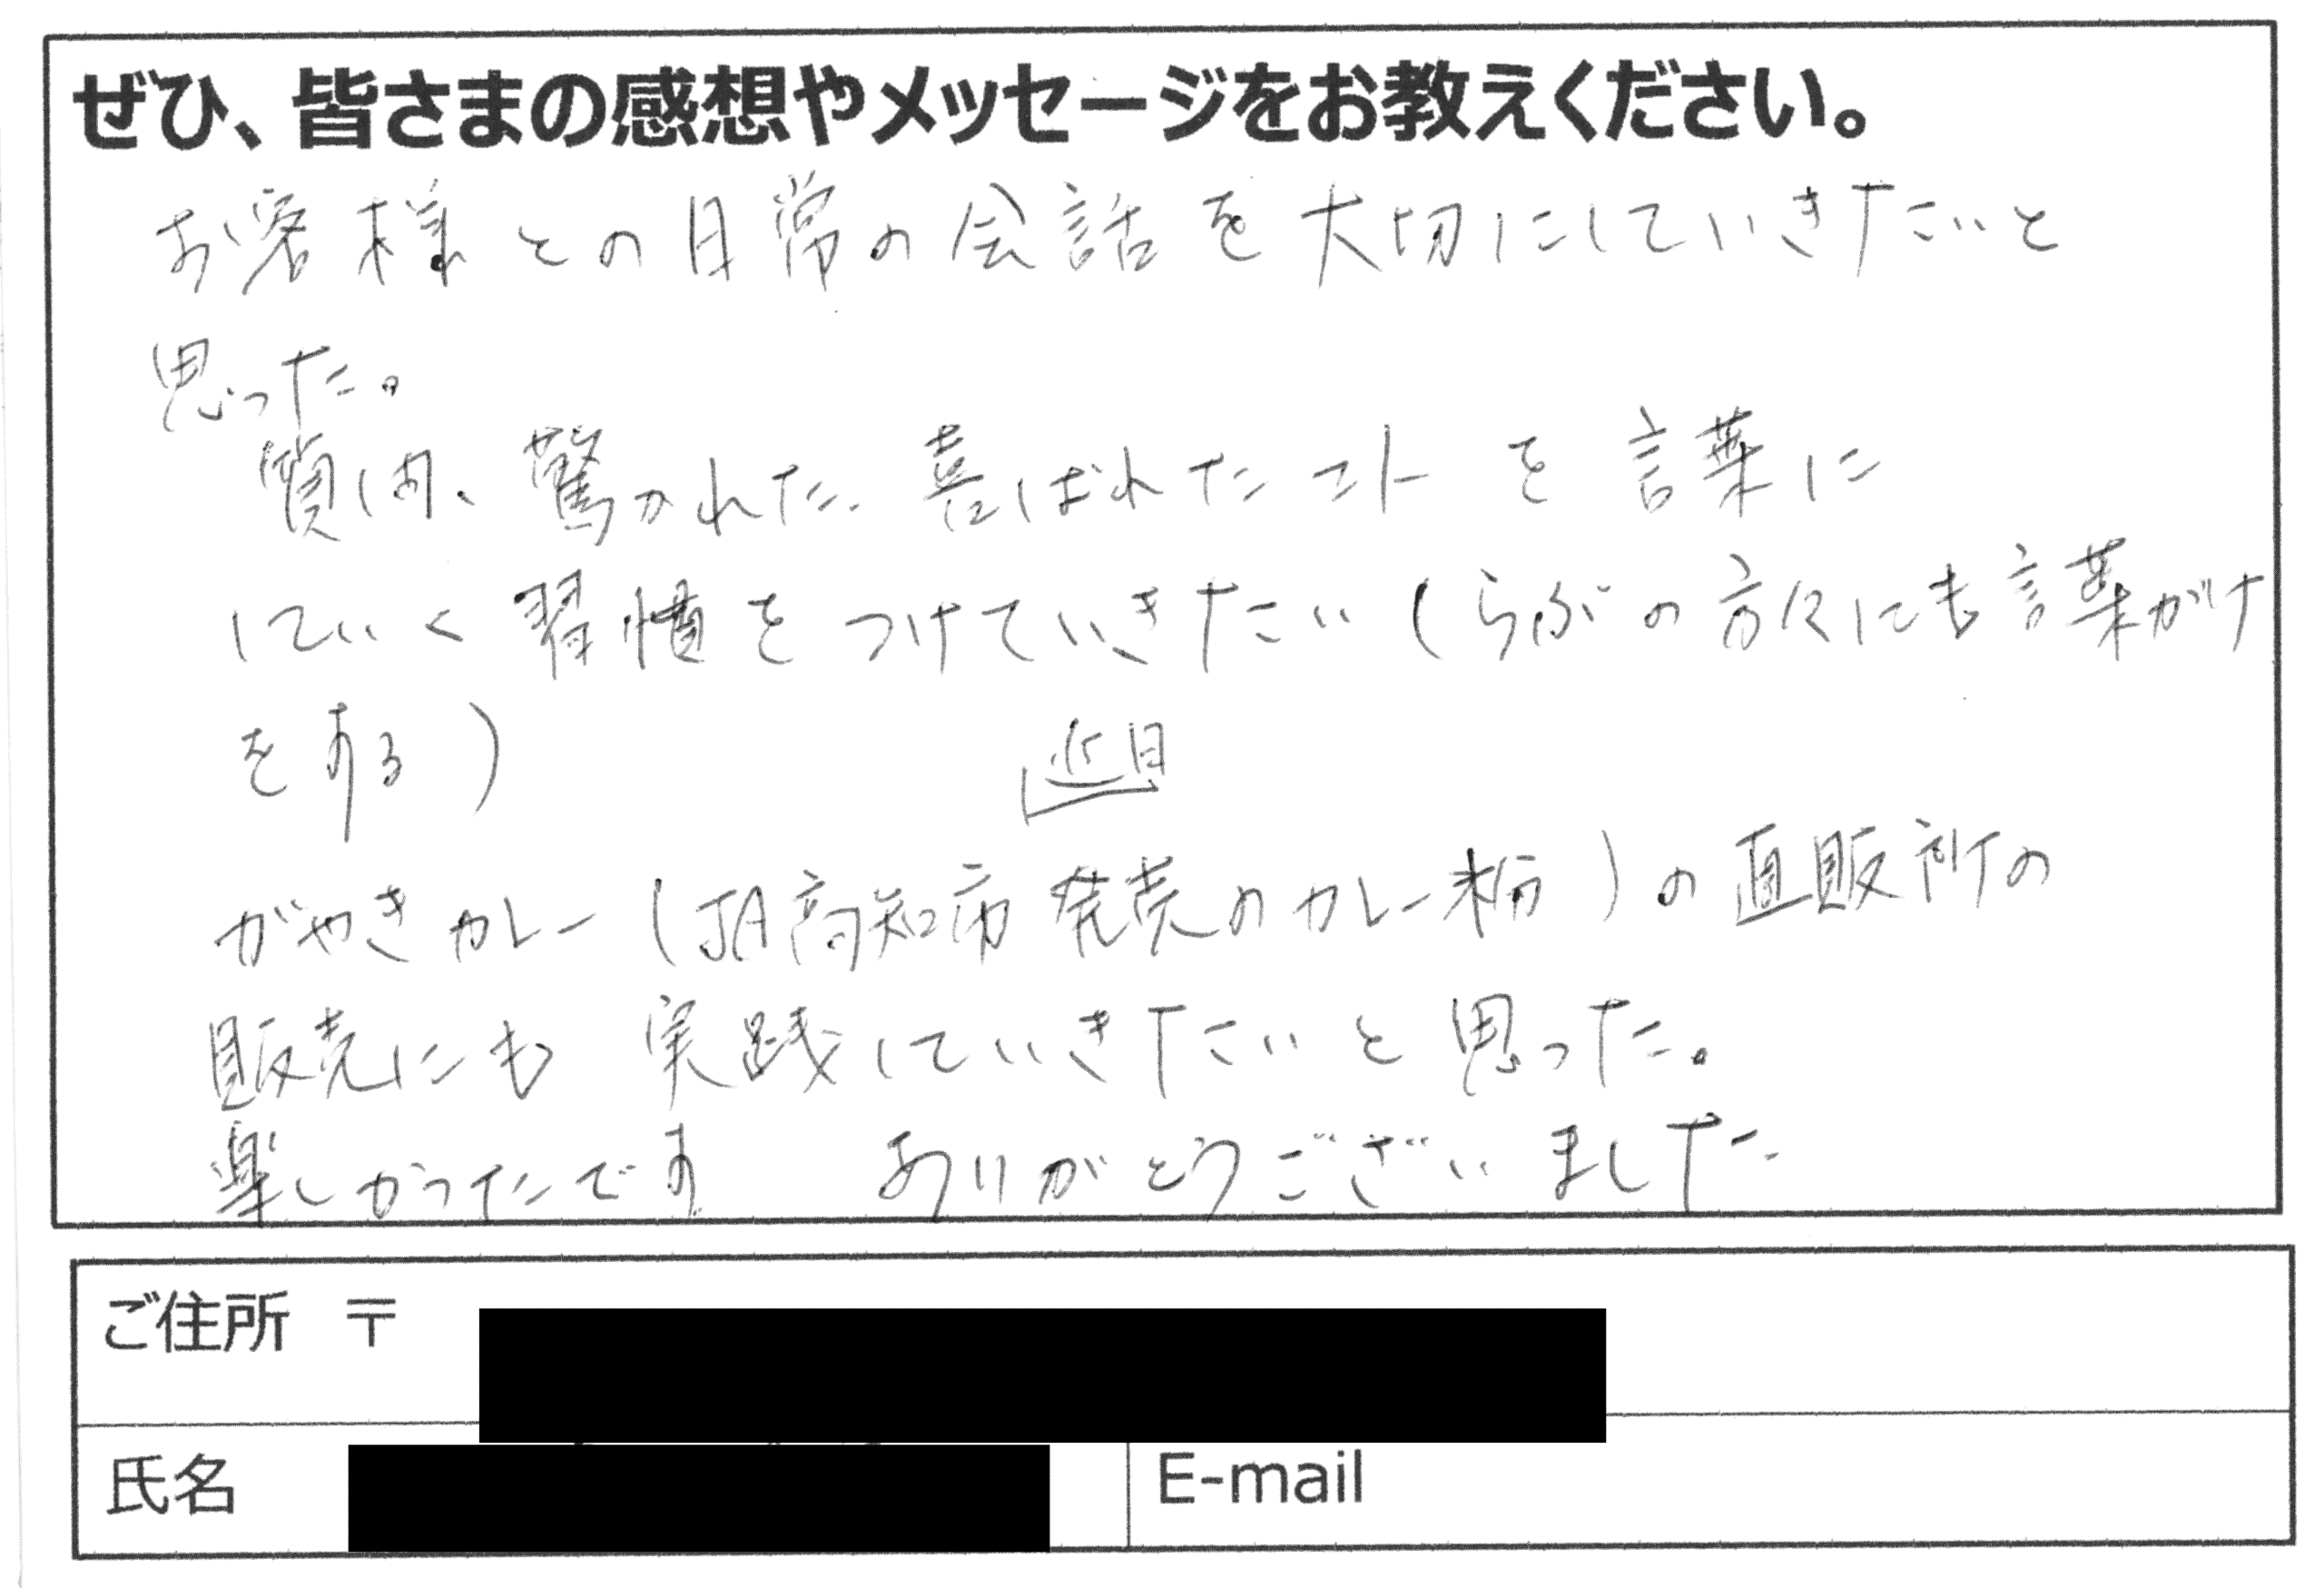 ぜひ、皆さまの感想やメッセージをお教えください。
お客様との日常の会話を大切にしていきたいと
思った。
質問、驚かれた、喜ばれたコトを言葉に
していく習慣をつけていきたい(らぶの方々にも言葉がけ
をする)
近日
がやきカレー(JA高知市発売のカレー粉)の直販所の
販売にも実践していきたいと思った。
楽しかったです ありがとうございました
ご住所 〒
氏名
E-mail